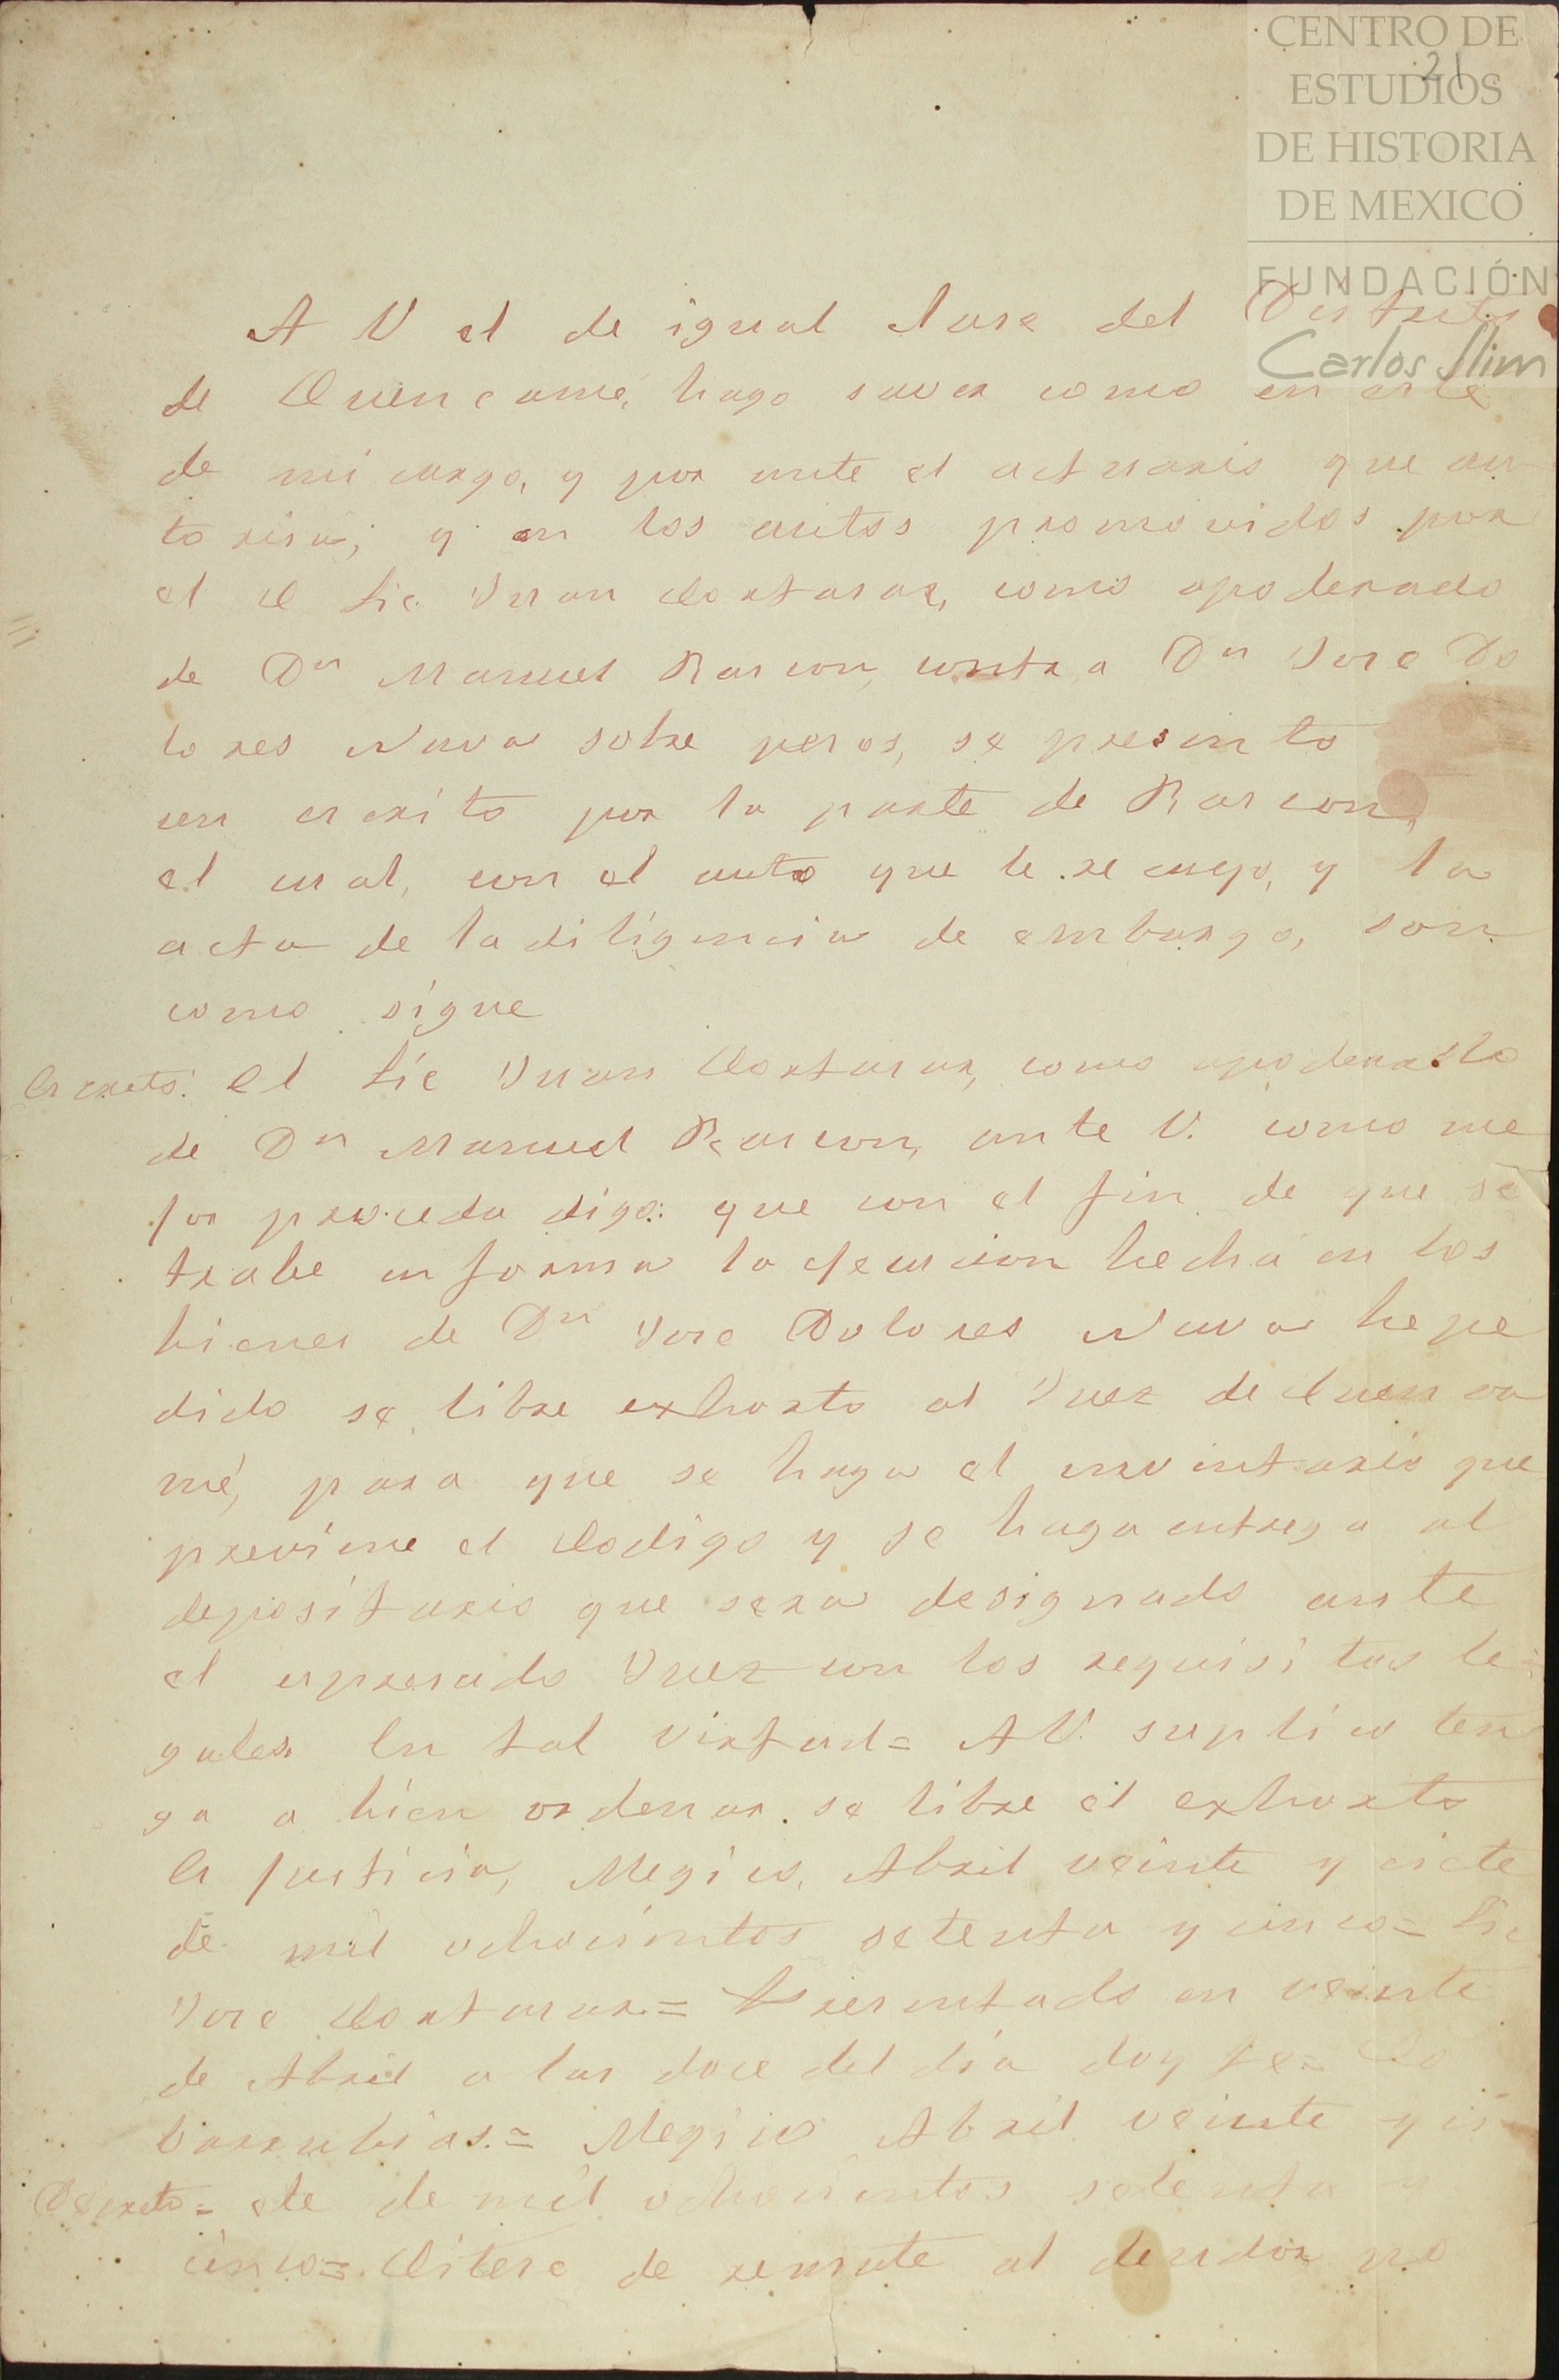 CENTRO DE
ESTUDIOS
DE HISTORIA
DE MEXICO
FUNDACIÓN
Carlos Slim
21
A V el de igual clase del Distrito
de Cuencamé, hago saver como en este
de mi cargo, y por ante el actuario que au
torisa, y en los autos promovidos por
el C Lic. Juan Cortasar, como apoderado
de Dn Manuel Rascon, contra Dn Jose Do
lores Nava sobre pesos, se presento
un escrito por la parte de Rascon,
el cual, con el auto que le recayo, y la
acta de la diligencia de embargo, son
como sigue
Escrito. El Lic Juan Cortasar, como apoderado
de Dn Manuel Rascon, ante V. como me
jor proceda digo: que con el fin de que se
trabe en forma la ejecucion hecha en los
bienes de Dn Jose Dolores Nava he pe
dido se libre exhorto al Juez de Cuenca
mé, para que se haga el inventario que
previene el Codigo y se haga entrega al
depositario que sera designado ante
el espresado Juez con los requisitos le=
gales. En tal virtud= A V. suplico ten
ga a bien ordenar se libre el exhorto
Es justicia, Megico, Abril veinte y siete
de mil ochocientos setenta y cinco= Lic
Jose Cortasar.= Presentado en veinte
de Abril a las doce del dia doy fe= Co
barrubias.= Megico Abril veinte y si
Decreto= ete de mil ochocientos setenta y
cinco=. Citese de remate al deudor po